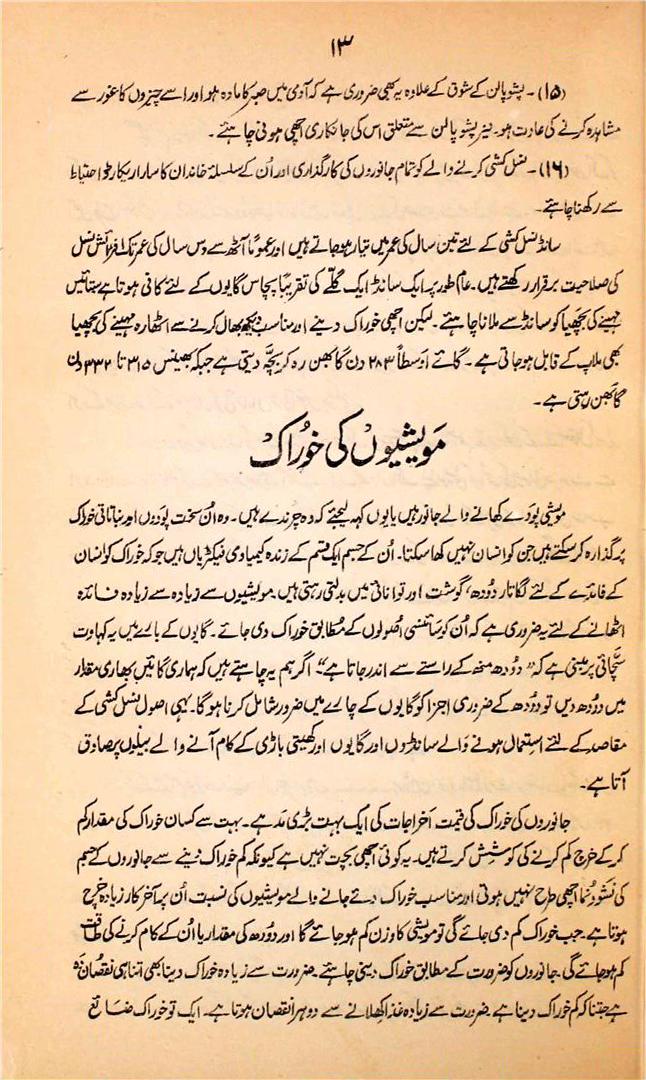 ۱۳
(۱۵)۔ پشو پالن کے شوق کے علاوہ یہ بھی ضروری ہے کہ آدمی میں صبر کا مادہ ہو اور اسے چیزوں کا غور سے
مشاہدہ کرنے کی عادت ہو۔ نیز پشو پالن سے متعلق اس کی جانکاری اچھی ہونی چاہئے۔
(۱۶)۔ نسل کشی کرنے والے کو تمام جانوروں کی کارگذاری اور اُن کے سلسلۂ خاندان کا سارا ریکارڈ احتیاط
سے رکھنا چاہئے۔
سانڈ نسل کشی کے لئے تین سال کی عمر میں تیار ہو جاتے ہیں اور عموماً آٹھ سے دس سال کی عمر تک افزائش نسل
کی صلاحیت برقرار رکھتے ہیں۔ عام طور پر ایک سانڈ ایک گلّے کی تقریباً پچاس گایوں کے لئے کافی ہوتا ہے ستائیس
مہینے کی بچھیا کو سانڈ سے ملانا چاہئے۔ لیکن اچھی خوراک دینے اور مناسب دیکھ بھال کرنے سے اٹھارہ مہینے کی بچھیا
بھی ملاپ کے قابل ہو جاتی ہے۔ گائے اوسطاً ۲۸۳ دن گابھن رہ کر بچّہ دیتی ہے جبکہ بھینس ۳۱۵ تا ۳۳۲ دن
گابھن رہتی ہے۔
مَویشیوں کی خوُراک
مویشی پودے کھانے والے جانور ہیں یا یوں کہہ لیجئے کہ وہ چرندے ہیں۔ وہ اُن سخت پودوں اور نباتاتی خوراک
پر گذارہ کر سکتے ہیں جن کو انسان نہیں کھا سکتا۔ اُن کے جسم ایک قسم کے زندہ کیمیاوی فیکٹریاں ہیں جو کہ خوراک کو انسان
کے فائدے کے لئے لگاتار دودھ، گوشت اور توانائی میں بدلتی رہتی ہیں۔ مویشیوں سے زیادہ سے زیادہ فائدہ
اٹھانے کے لئے یہ ضروری ہے کہ اُن کو سائنسی اُصولوں کے مُطابق خوراک دی جائے۔ گایوں کے بارے میں یہ کہاوت
سچّائی پر مبنی ہے کہ "دودھ منھ کے راستے سے اندر جاتا ہے"۔ اگر ہم یہ چاہتے ہیں کہ ہماری گائیں بھاری مقدار
میں دودھ دیں تو دودھ کے ضروری اجزا کو گایوں کے چارے میں ضرور شامل کرنا ہوگا۔ یہی اصول نسل کشی کے
مقاصد کے لئے استعمال ہونے والے سانڈوں اور گایوں اور کھیتی باڑی کے کام آنے والے بیلوں پر صادق
آتا ہے۔
جانوروں کی خوراک کی قیمت اَخراجات کی ایک بہت بڑی مَد ہے۔ بہت سے کسان خوراک کی مقدار کم
کر کے خرچ کم کرنے کی کوشش کرتے ہیں۔ یہ کوئی اچھی بچت نہیں ہے کیونکہ کم خوراک دینے سے جانوروں کے جسم
کی نشو و نما اچھی طرح نہیں ہوتی اور مناسب خوراک دئے جانے والے مویشیوں کی نسبت اُن پر آخر کار زیادہ خرچ
ہوتا ہے۔ جب خوراک کم دی جائے گی تو مویشی کا وزن کم ہو جائے گا اور دودھ کی مقدار یا اُن کے کام کرنے کی طاقت
کم ہو جائے گی۔ جانوروں کو ضرورت کے مطابق خوراک دینی چاہئے۔ ضرورت سے زیادہ خوراک دینا بھی اتنا ہی نقصان دہ
ہے جتنا کہ کم خوراک دینا ہے۔ ضرورت سے زیادہ غذا کھلانے سے دوہرا نقصان ہوتا ہے۔ ایک تو خوراک ضائع